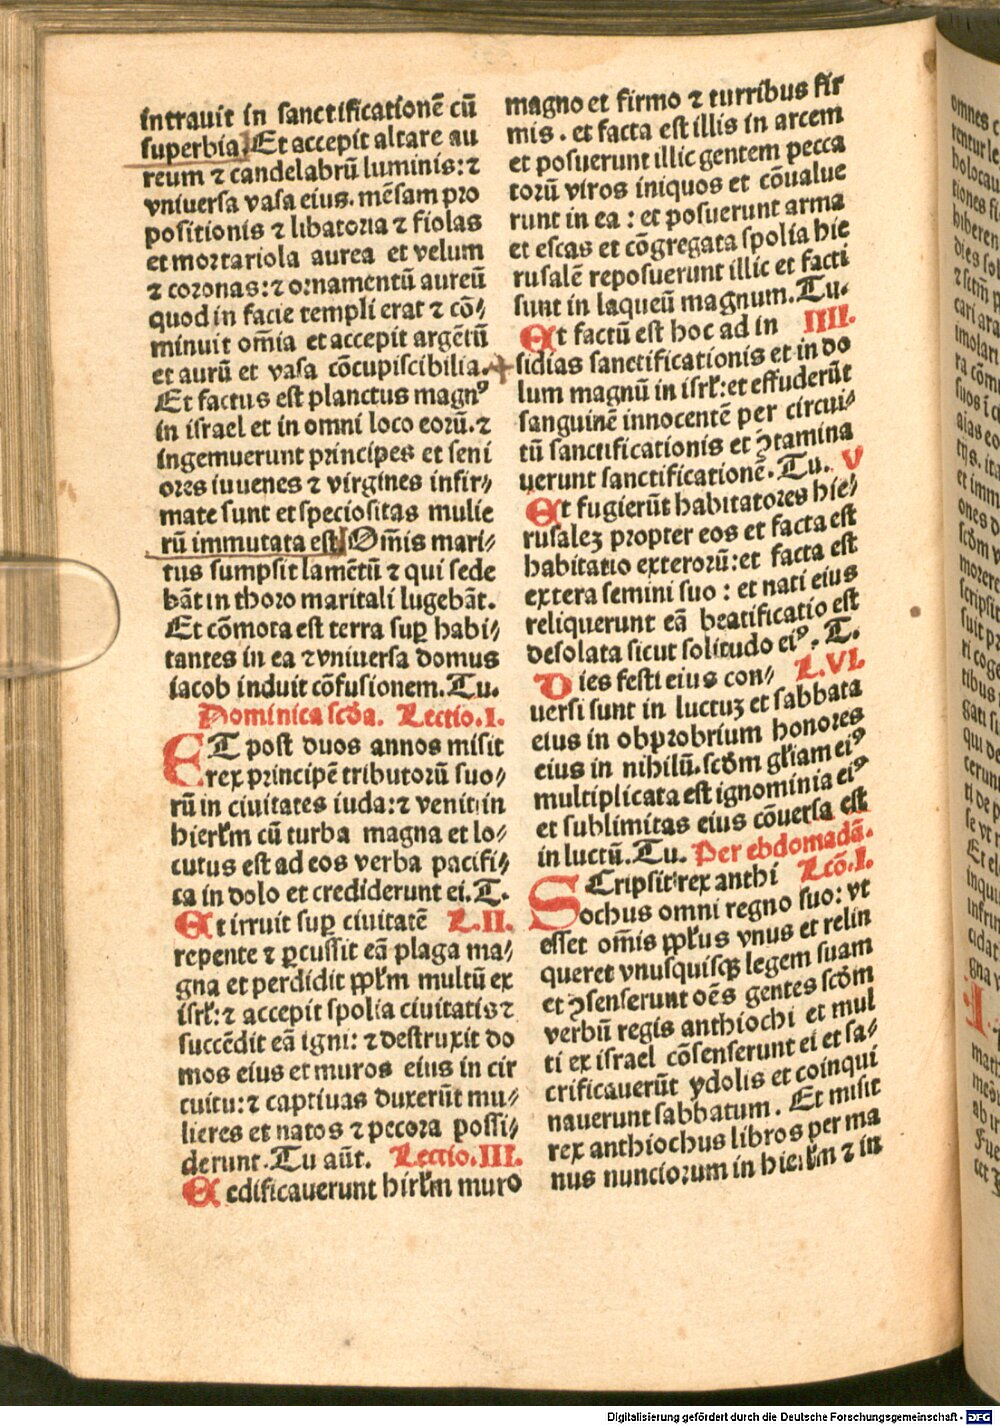 intrauit in sanctificationē cū
superbia. Et accepit altare au
reum ⁊ candelabrū luminis: ⁊
vniuersa vasa eius. mēsam pro
positionis ⁊ libatoria ⁊ fiolas
et mortariola aurea et velum
⁊ coronas: ⁊ ornamentū aureū
quod in facie templi erat ⁊ cō⸗
minuit om̄ia et accepit argētū
et aurū et vasa cōcupiscibilia.
Et factus est planctus magnꝰ
in israel et in omni loco eorū. ⁊
ingemuerunt principes et seni
ores iuuenes ⁊ virgines infir⸗
mate sunt et speciositas mulie
rū immutata est. Om̄is mari⸗
tus sumpsit lamētū ⁊ qui sede
bāt in thoro maritali lugebāt.
Et cōmota est terra suꝑ habi⸗
tantes in ea ⁊ vniuersa domus
iacob induit cōfusionem. Tu.
Dominica scḋa. Lectio. I.
ET post duos annos misit
rex principē tributorū suo⸗
rū in ciuitates iuda: ⁊ venit in
hierłm cū turba magna et lo⸗
cutus est ad eos verba pacifi⸗
ca in dolo et crediderunt ei. T.
Et irruit suꝑ ciuitatē L. II.
repente ⁊ ꝑcussit eā plaga ma⸗
gna et perdidit ppłm multū ex
isrł: ⁊ accepit spolia ciuitatis ⁊
succēdit eā igni: ⁊ destruxit do
mos eius et muros eius in cir
cuitu: ⁊ captiuas duxerūt mu⸗
lieres et natos ⁊ pecora possi⸗
derunt. Tu aūt. Lectio. III.
Et edificauerunt hirłm muro
magno et firmo ⁊ turribus fir
mis. et facta est illis in arcem
et posuerunt illic gentem pecca
torū viros iniquos et cōualue
runt in ea: et posuerunt arma
et escas et cōgregata spolia hie
rusalē reposuerunt illic et facti
sunt in laqueū magnum. Tu.
Et factū est hoc ad in IIII.
sidias sanctificationis et in do
lum magnū in isrł: et effuderūt
sanguinē innocentē per circui⸗
tū sanctificationis et ꝯtamina
uerunt sanctificationē. Tu. V
Et fugierūt habitatores hie⸗
rusaleꝫ propter eos et facta est
habitatio exterorū: et facta est
extera semini suo: et nati eius
reliquerunt eā beatificatio est
desolata sicut solitudo eiꝰ. T.
Dies festi eius con⸗ L. VI.
uersi sunt in luctuꝫ et sabbata
eius in obprobrium honores
eius in nihilū. scḋm głiam eiꝰ
multiplicata est ignominia eiꝰ
et sublimitas eius cōuersa est
in luctū. Tu. Per ebdomadā.
SCripsit rex anthi Lcō. I.
ochus omni regno suo: vt
esset om̄is ppłus vnus et relin
queret vnusquisqꝫ legem suam
et ꝯsenserunt oēs gentes scḋm
verbū regis anthiochi et mul
ti ex israel cōsenserunt ei et sa⸗
crificauerūt ydolis et coinqui
nauerunt sabbatum. Et misit
rex anthiochus libros per ma
nus nunciorum in hierłm ⁊ in
Digitalisierung gefördert durch die Deutsche Forschungsgemeinschaft - DFG